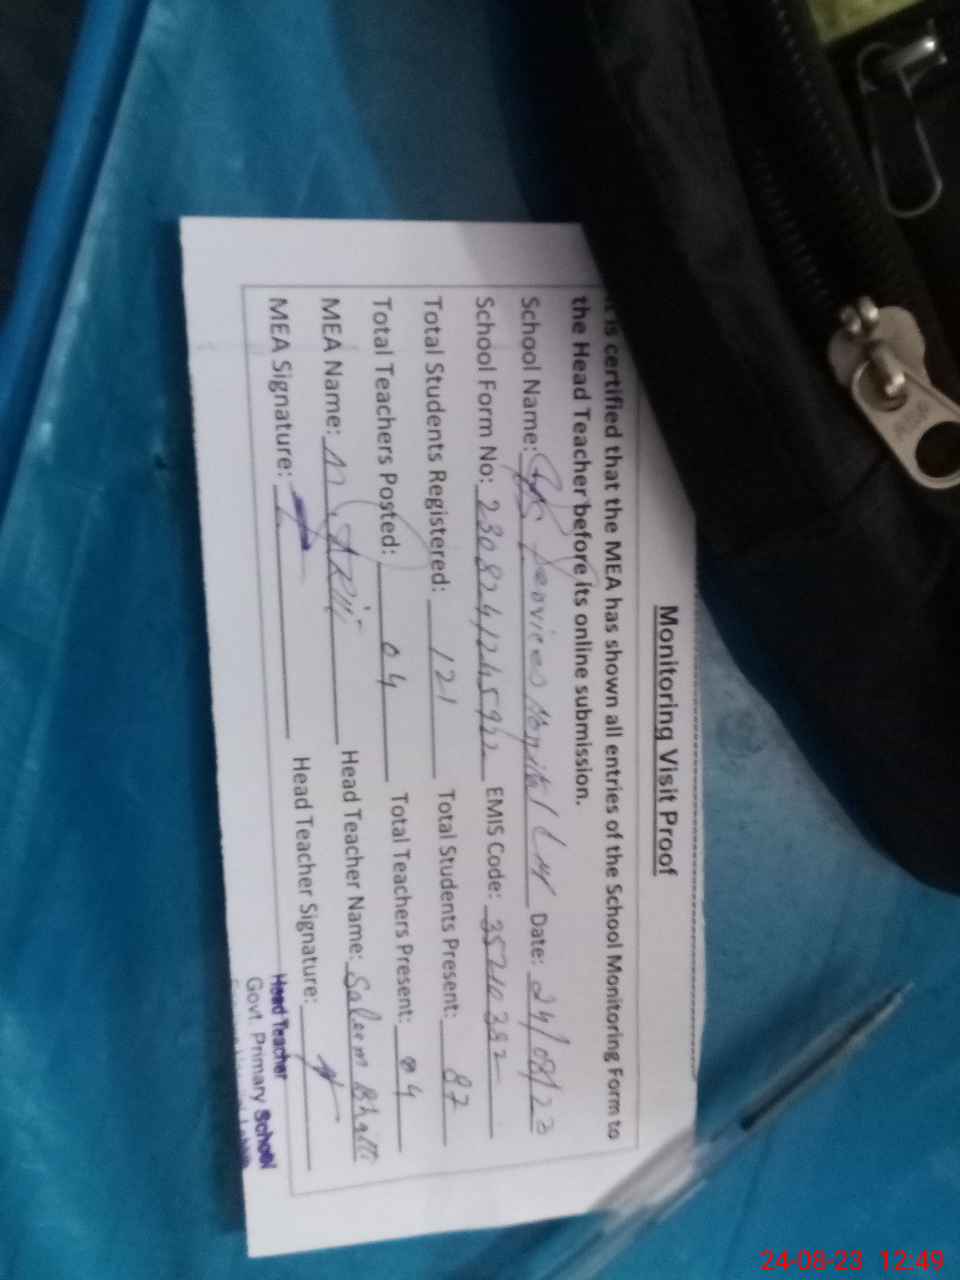 Monitoring Visit Proof
is certified that the MEA has shown all entries of the School Monitoring Form to
the Head Teacher before its online submission.
School Name: GPS Services Hospital LHR Date: 24/08/23
School Form No: EMIS Code: 35210382
Total Students Registered: 121 Total Students Present: 87
Total Teachers Posted: 04 Total Teachers Present: 04
MEA Name: M. Head Teacher Name: Saleem Bhatti
MEA Signature: Head Teacher Signature:
Head Teacher
Govt. Primary School
24-08-23 12:49